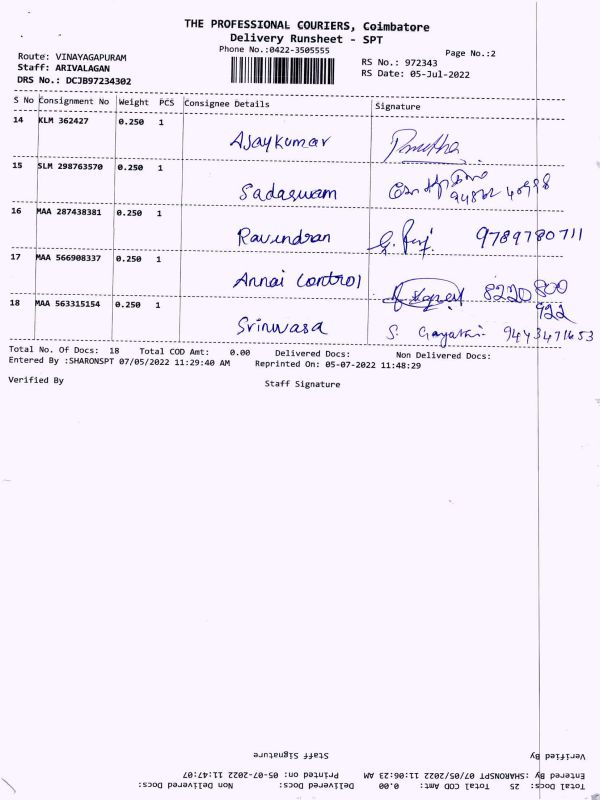 THE PROFESSIONAL COURIERS, Coimbatore
Delivery Runsheet - SPT
Phone No.:0422-3505555
Page No.:2
Route: VINAYAGAPURAM
RS No.: 972343
Staff: ARIVALAGAN
RS Date: 05-Jul-2022
DRS No.: DCJB97234302
S No Consignment No Weight PCS Consignee Details Signature
14 KLM 362427 0.250 1
Ajaykumar
15 SLM 298763570 0.250 1
Sadaswam
16 MAA 287438381 0.250 1
Ravindran 9789780711
17 MAA 566908337 0.250 1
Annai Control 8220 800
922
18 MAA 563315154 0.250 1
Srinivasa S. Gayathri 9443471653
Total No. Of Docs: 18 Total COD Amt: 0.00 Delivered Docs: Non Delivered Docs:
Entered By :SHARONSPT 07/05/2022 11:29:40 AM Reprinted On: 05-07-2022 11:48:29
Verified By Staff Signature
Verified By Staff Signature
Entered By :SHARONSPT 07/05/2022 11:06:23 AM Printed on: 05-07-2022 11:47:07
Docs: 25 Total COD Amt: 0.00 Delivered Docs: Non Delivered Docs: